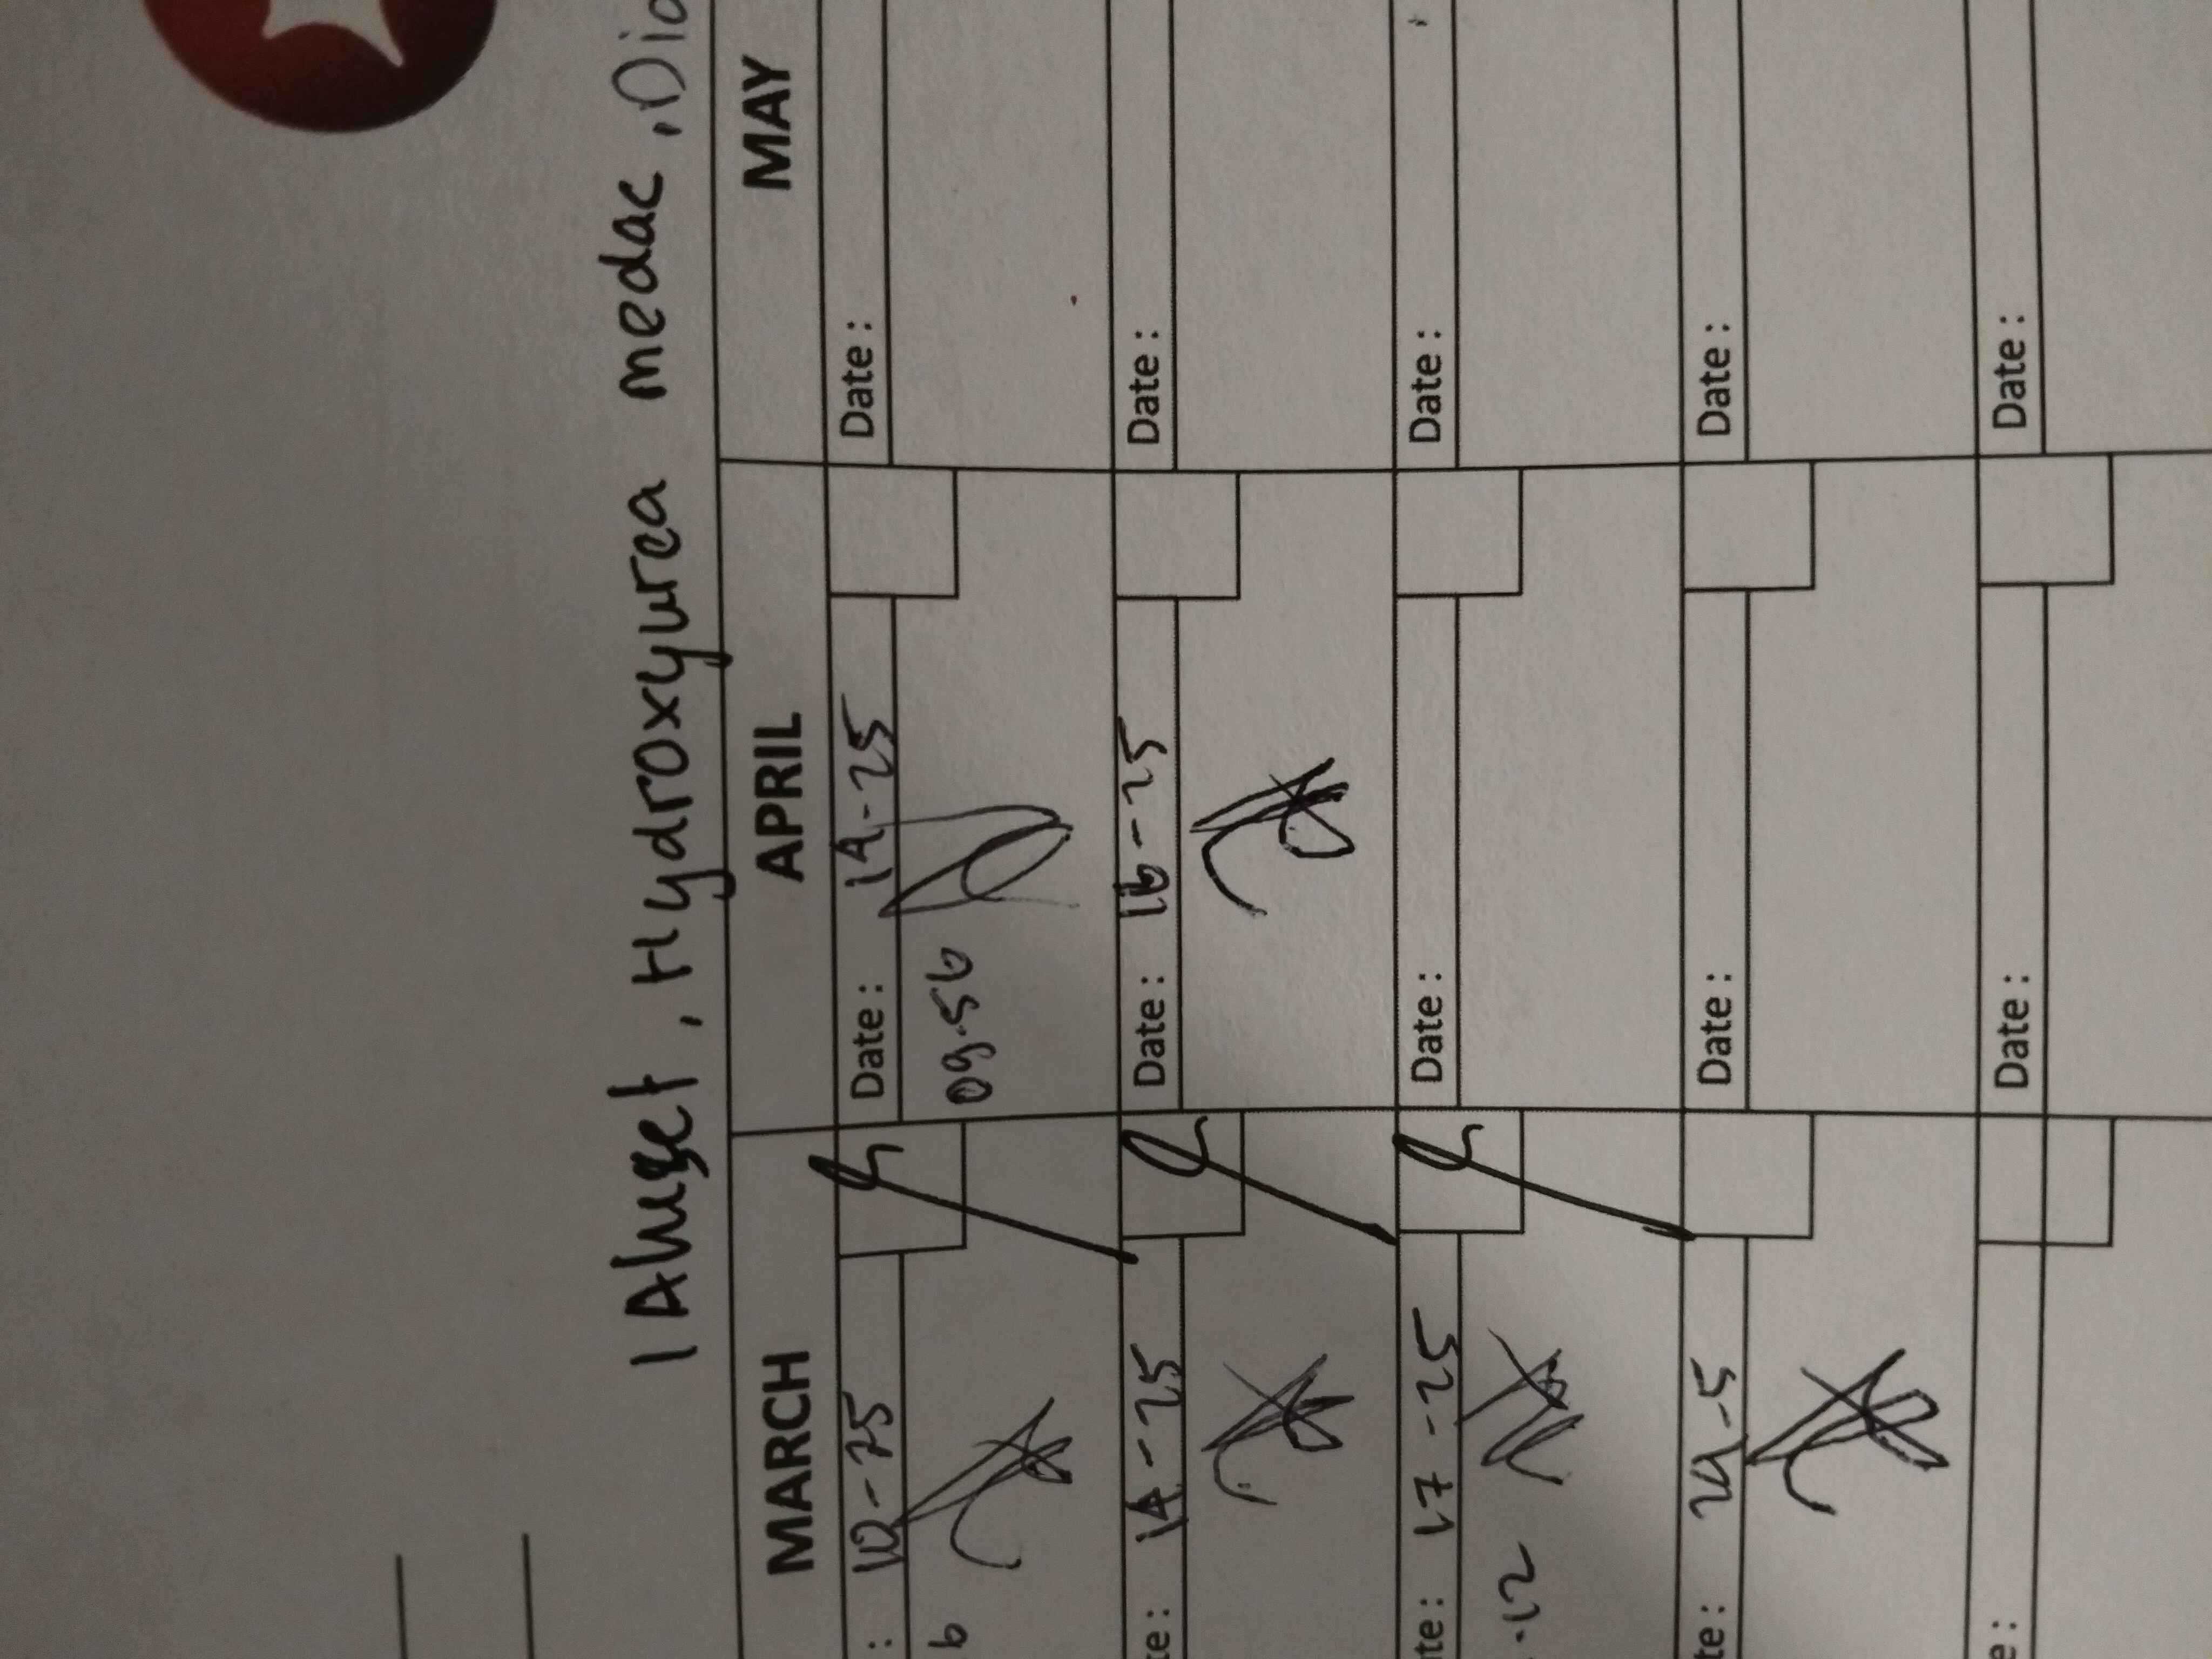 Hydroxyurea medac, Dia
MARCH APRIL MAY
: 10-25 Date : 14-25 Date :
6 09.56
te : 14-25 Date : 16-25 Date :
te : 17-25 Date : Date :
.12
te : 24-5 Date : Date :
e : Date : Date :